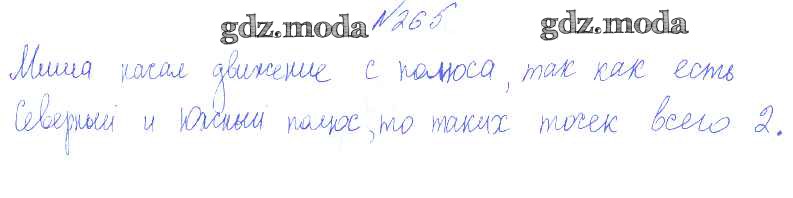 gdz.moda №265 gdz.moda
Миша насал движение с полюса, так как есть
Северный и Южный полюс, то таких точек всего 2.